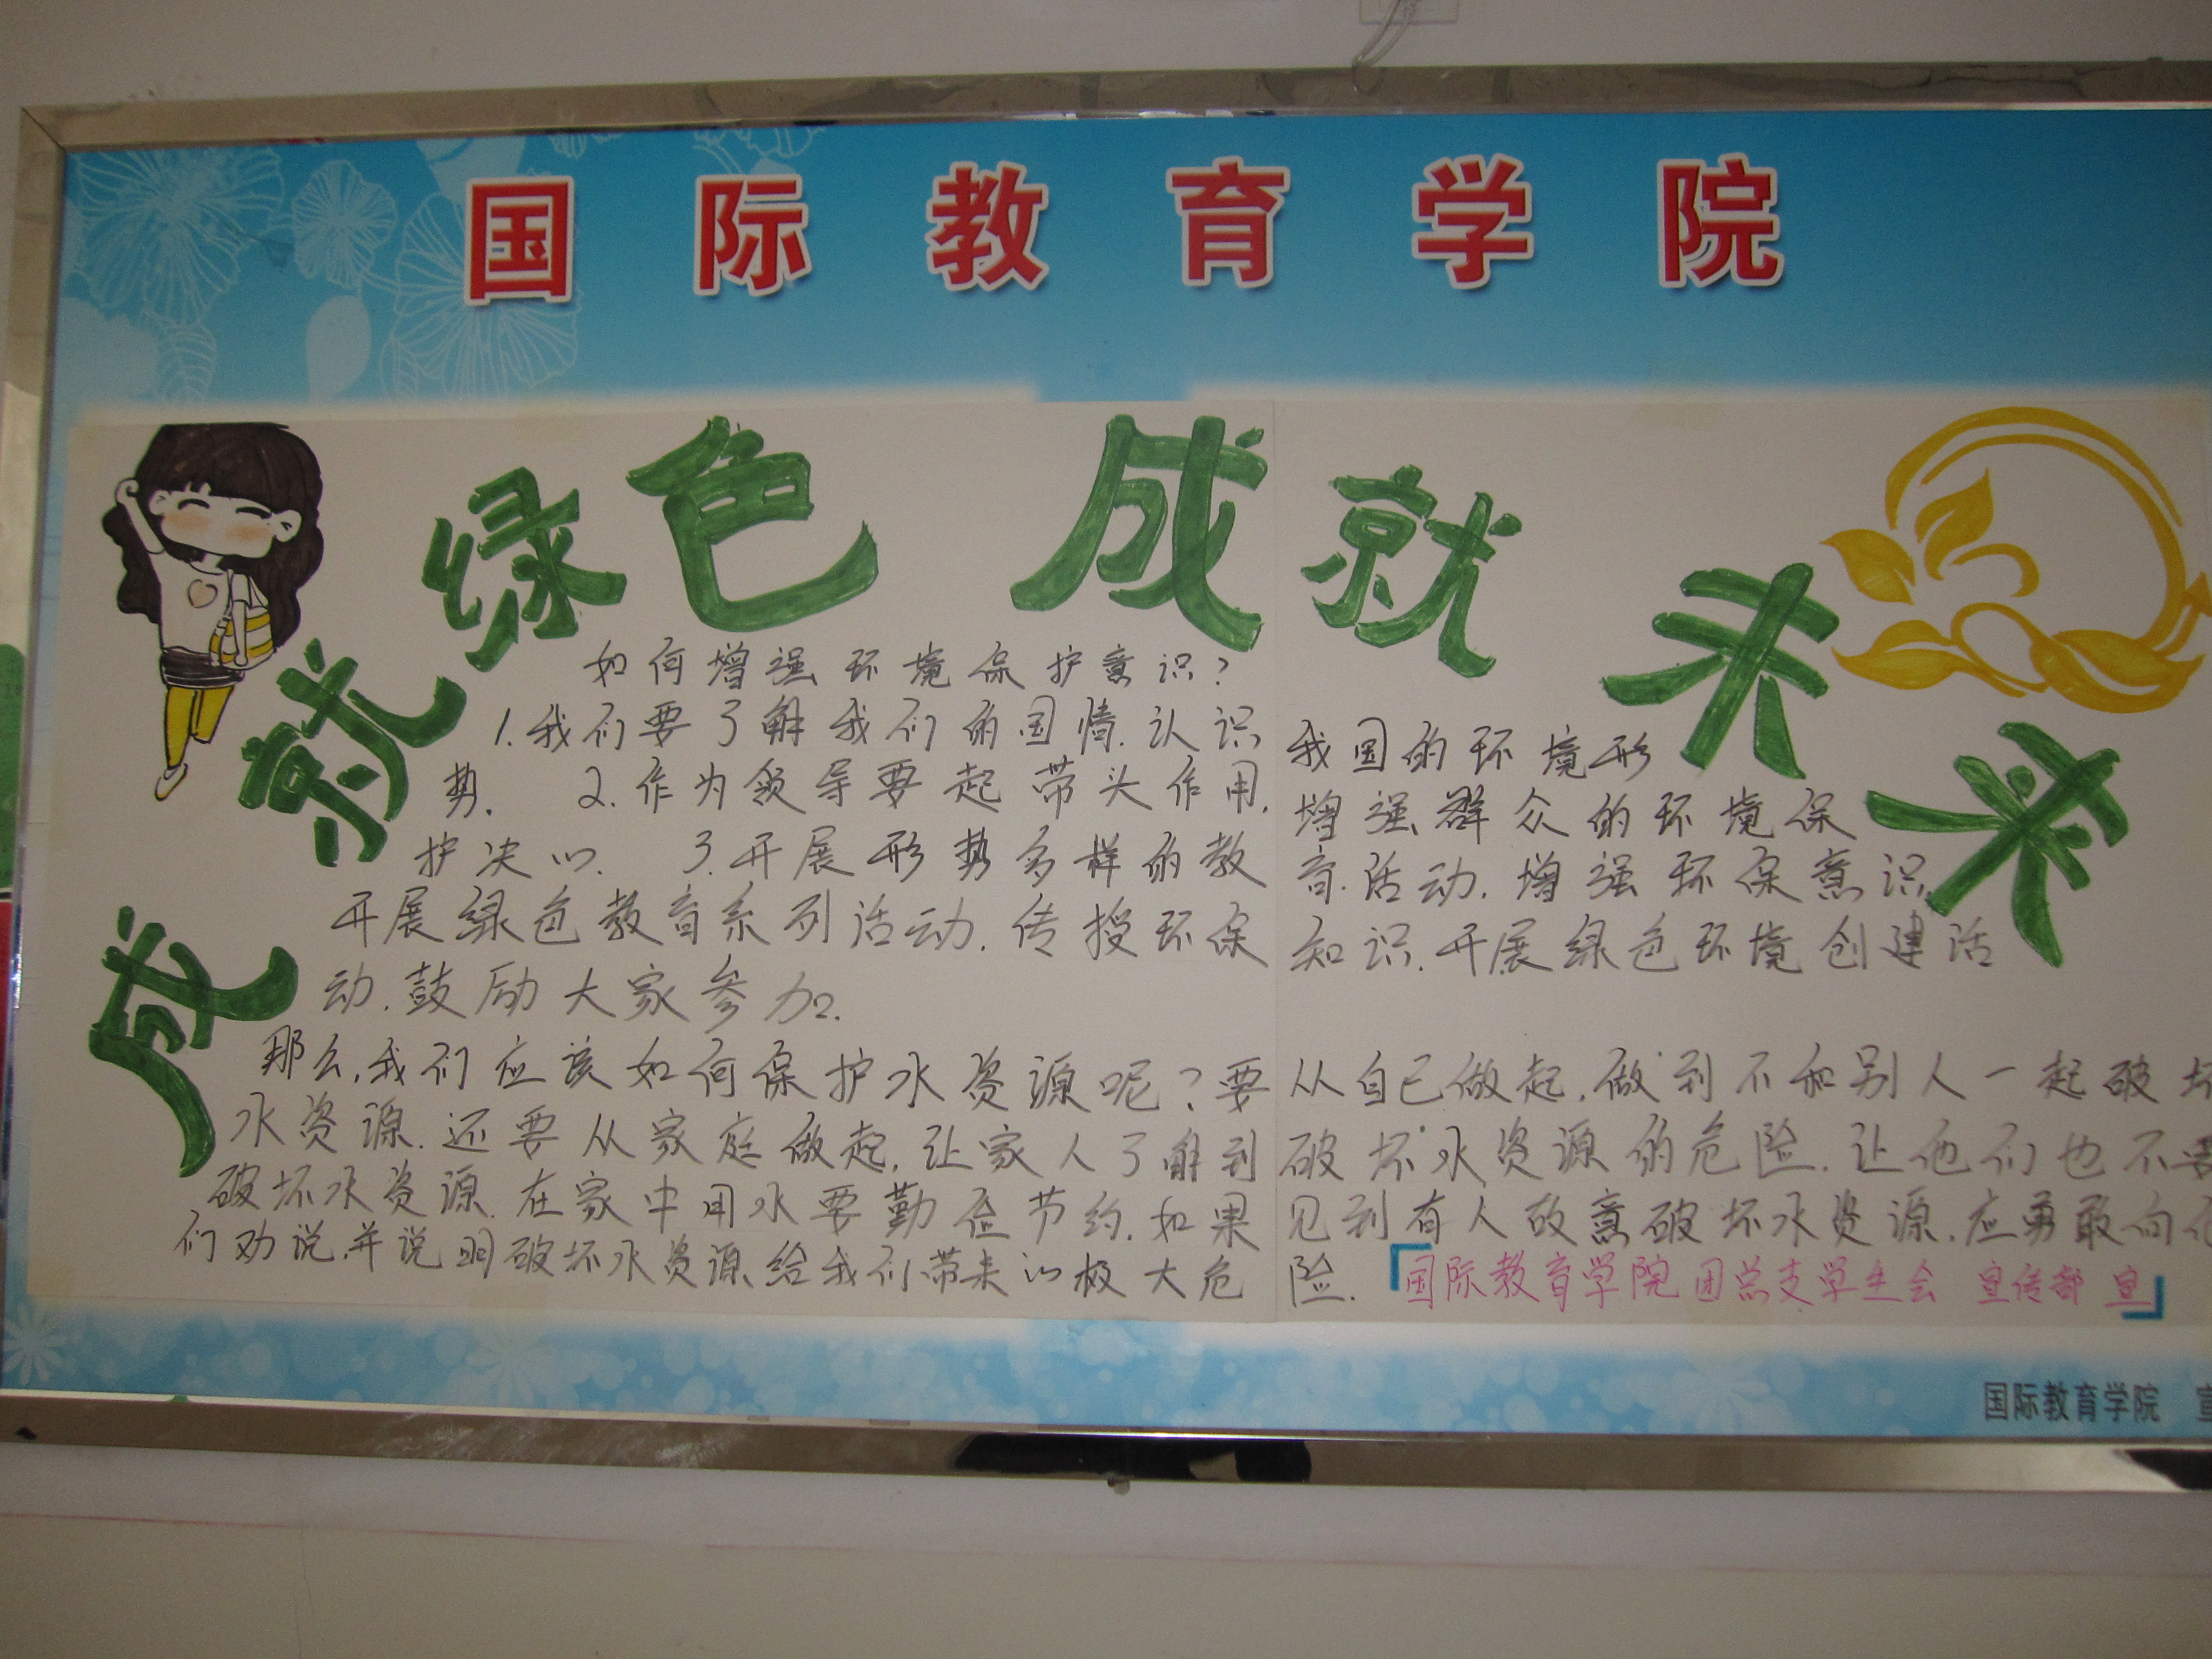 国际教育学院
成就绿色 成就未来
如何增强环境保护意识?
1.我们要了解我们的国情.认识我国的环境形
势. 2.作为领导要起带头作用.增强群众的环境保
护决心. 3.开展形势多样的教育.活动.增强环保意识.
开展绿色教育系列活动.传授环保知识.开展绿色环境创建活
动.鼓励大家参加.
那么,我们应该如何保护水资源呢?要从自己做起.做到不和别人一起破坏
水资源.还要从家庭做起.让家人了解到破坏水资源的危险.让他们也不要
破坏水资源.在家中用水要勤俭节约.如果见到有人故意破坏水资源.应勇敢向他
们劝说.并说明破坏水资源给我们带来的极大危险.
国际教育学院团总支学生会 宣传部 宣
国际教育学院 宣